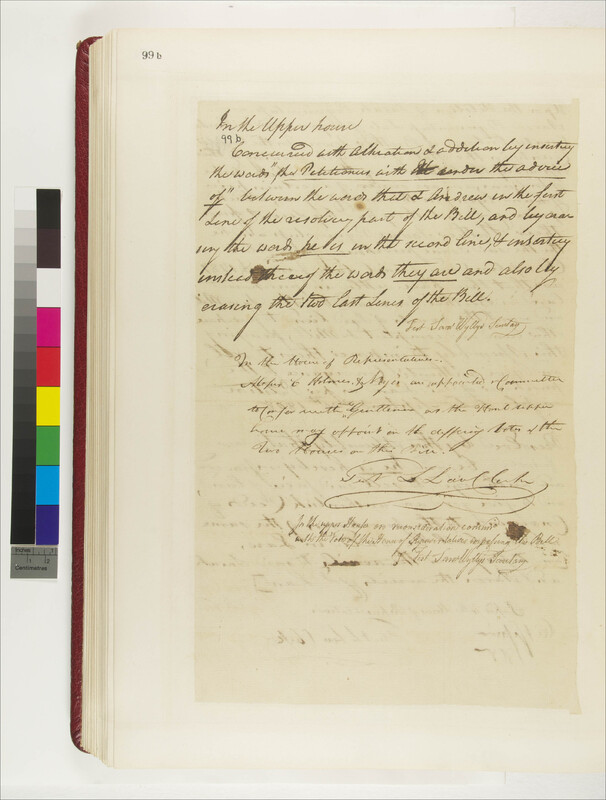 99 b
In the Upper house
99 b.
Concurred with Alteration & addition by inserting
the words "the Petitioners with under the advice
of" between the words that & Andrew in the first
Line of the resolving part of the Bill, and by eras
ing the words he is in the second line, & inserting
instead thereof the words they are and also by
erasing the two last Lines of the Bill.
Test Samˡ Wyllys Secretary
In the House of Representatives.
Holmes & are appointed a Committee
to Confer with Gentlemen as the Honˡ upper
house may appoint on the differing votes of the
two Houses on this Bill.
Test Clerk
In the upper House on reconsideration concurred
with the Vote of the House of Representatives in passing the Bill
Test Samˡ Wyllys Secretary
Inches
Centimetres